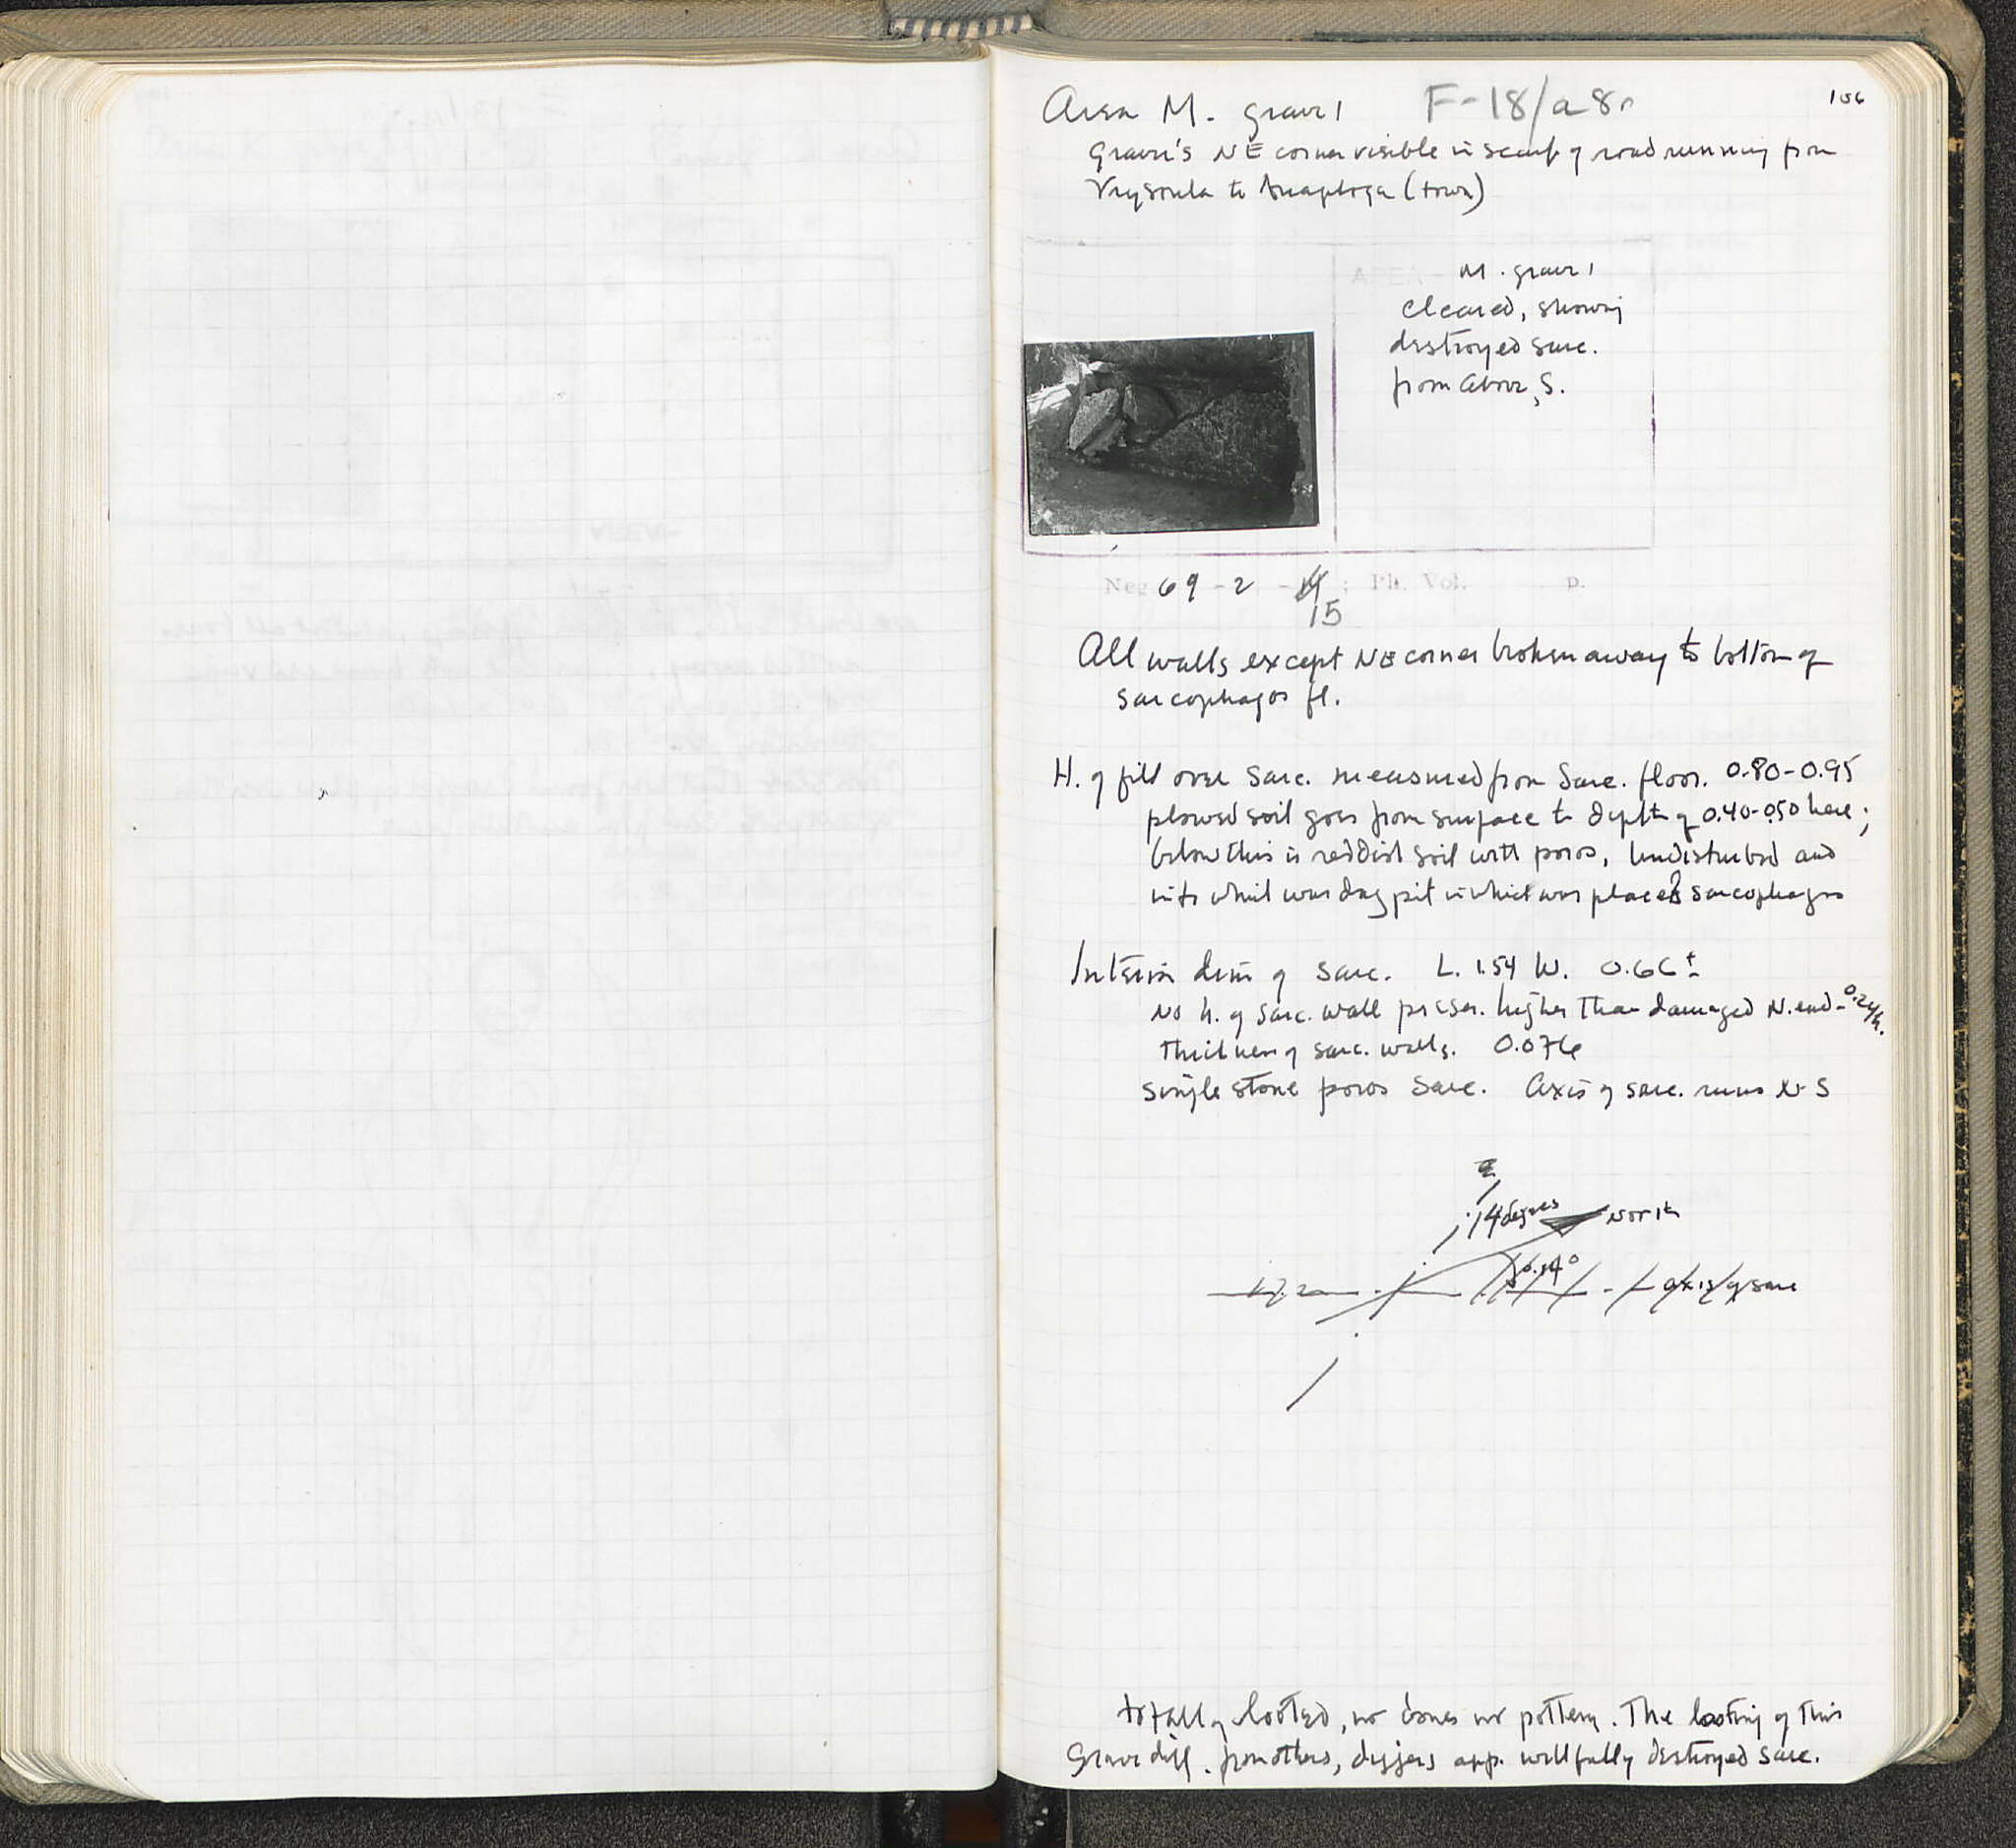 106
Area M. grave 1 F-18/a8
Grave's NE corner visible in scarp of road running from
Vrysoula to Anaploga (town)
M. grave 1
cleared, showing
destroyed sarc.
from above, S.
Neg 69-2-14; Ph. Vol. p.
15
All walls except NE corner broken away to bottom of
sarcophagos fl.
H. of fill over sarc. measured from sarc. floor. 0.80-0.95
plowed soil goes from surface to depth of 0.40-0.50 here;
below this is reddish soil with poros, undisturbed and
into which was dug pit in which was placed sarcophagos
Interior dim of sarc. L. 1.54 W. 0.66 ±
No h. of sarc. wall preser. higher than damaged N. end -
Thickness of sarc. walls. 0.076
single stone poros sarc. Axis of sarc. runs N-S
14 degrees North
axis of sarc
totally looted, no bones no pottery. The looting of this
Grave diff. from others, diggers app. willfully destroyed sarc.